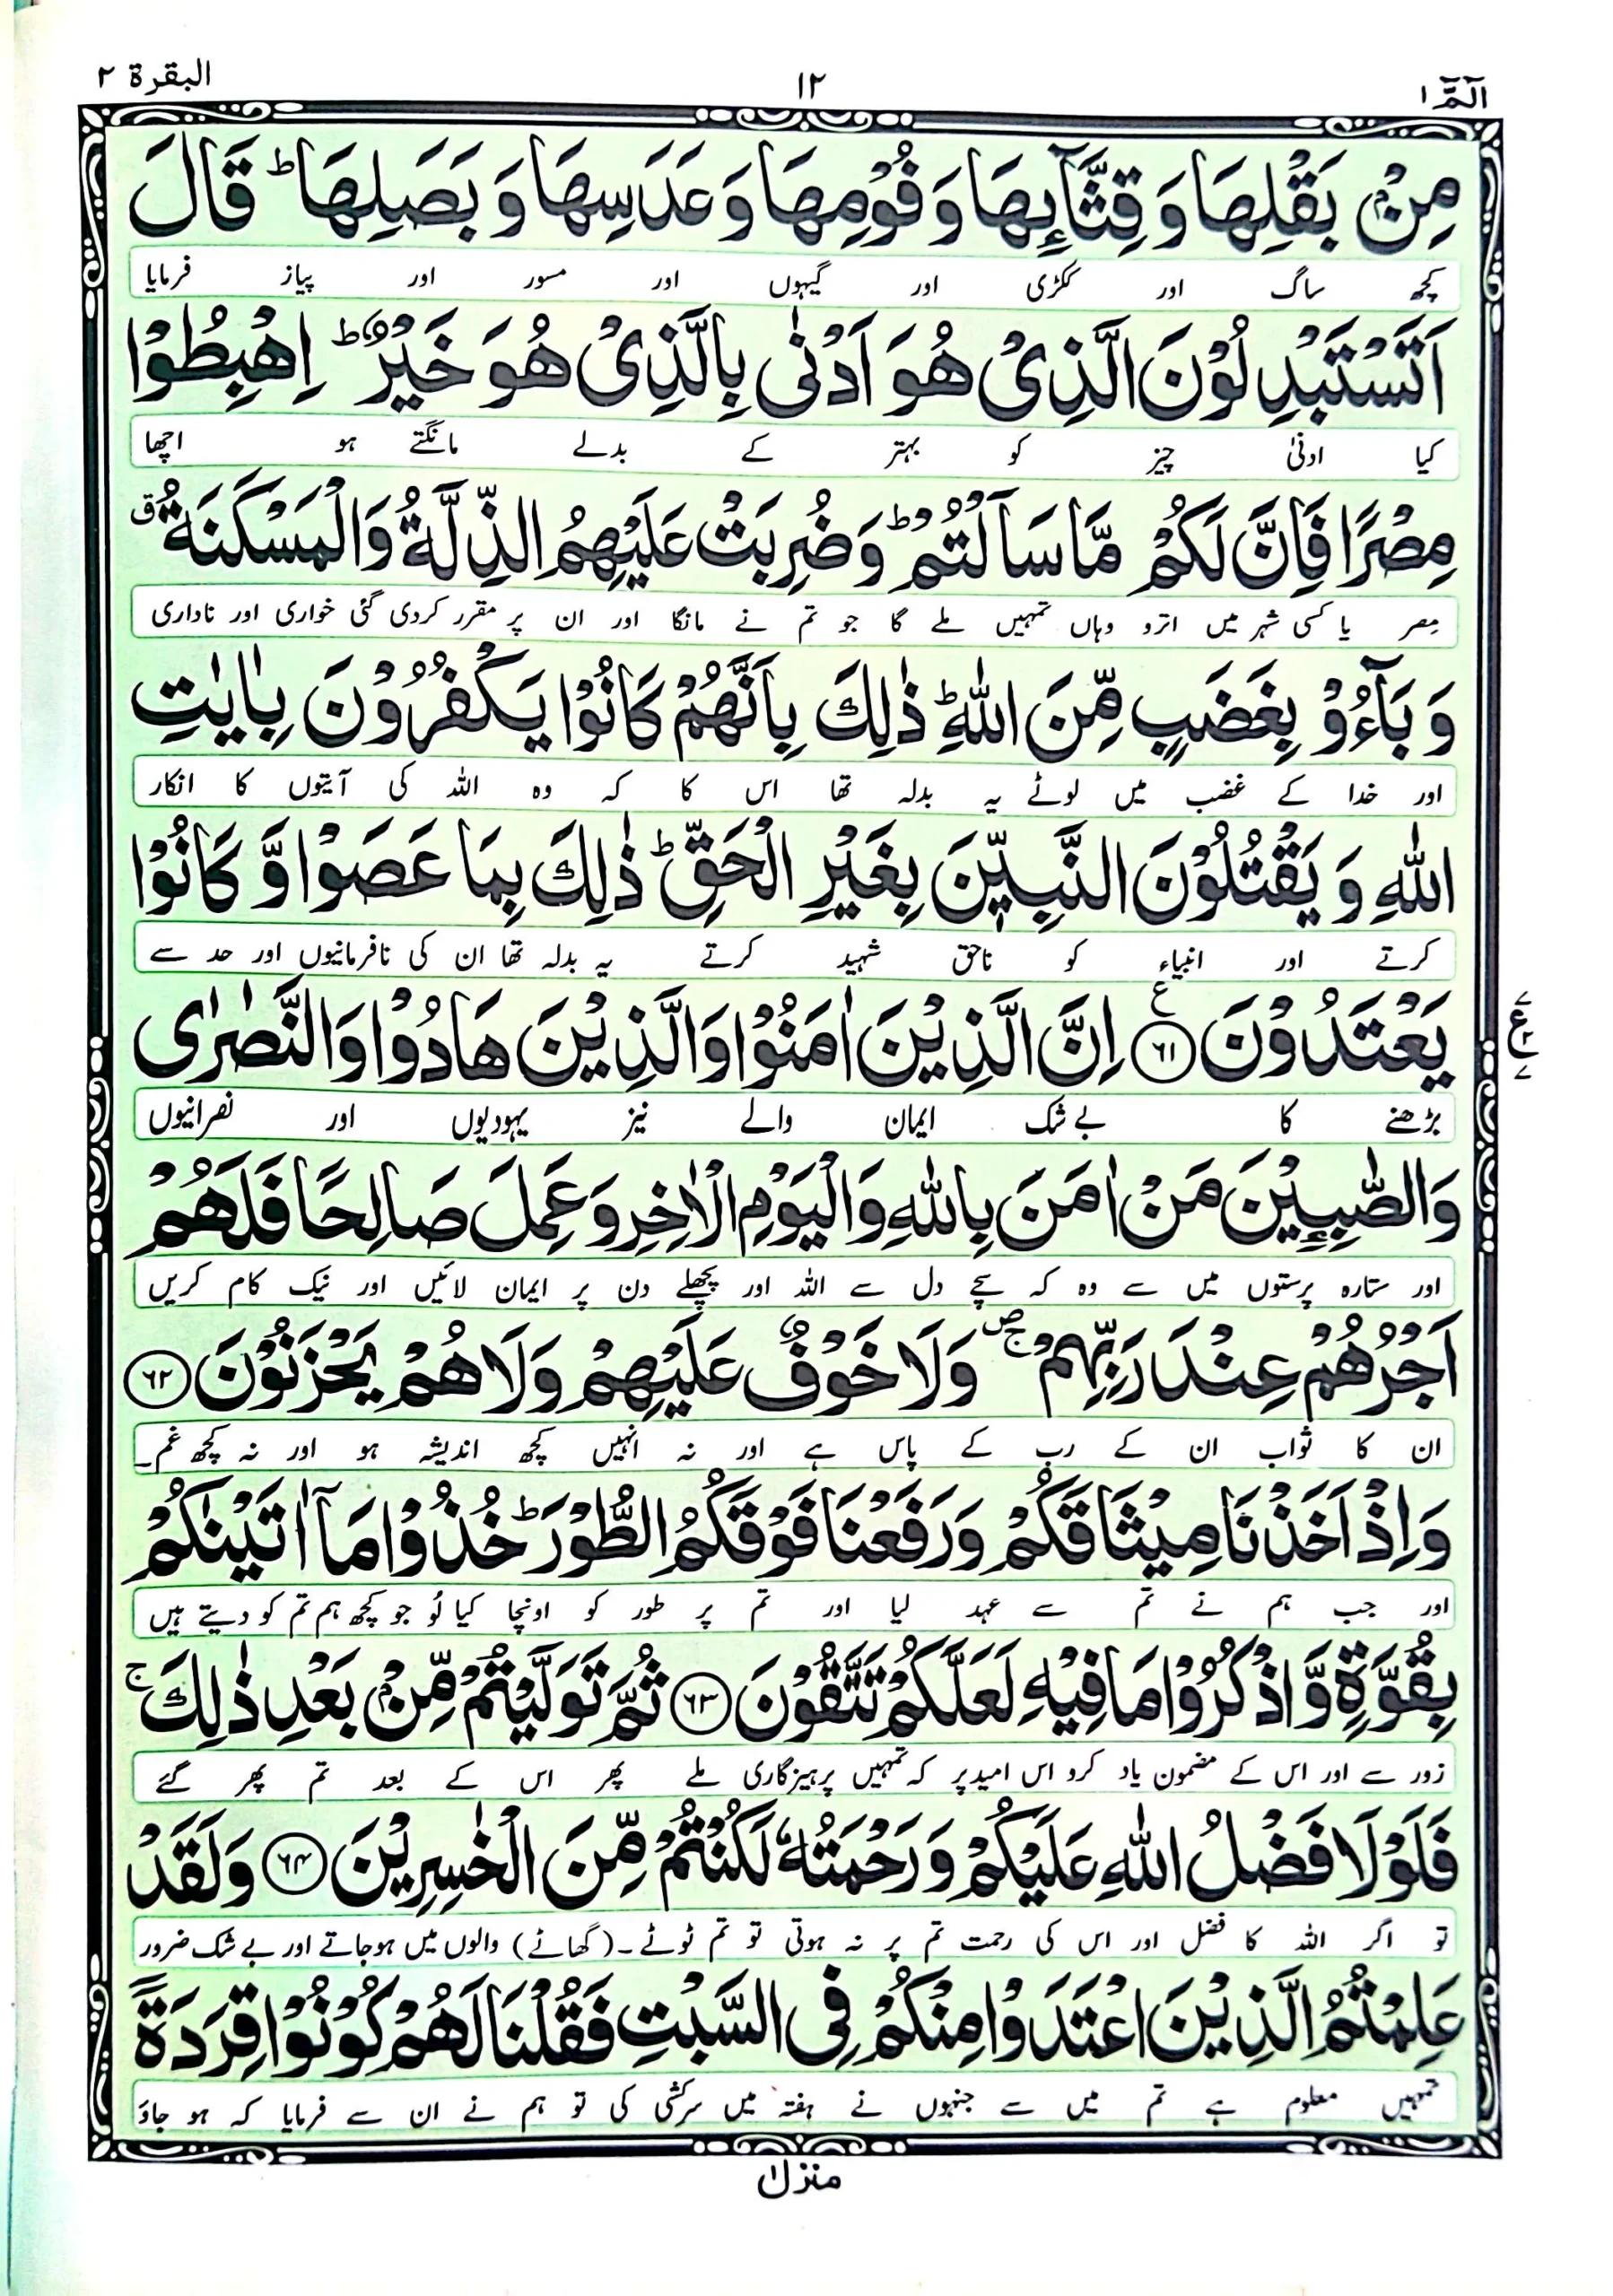 الٓمّٓ ١ ١٢ البقرة ٢
مِنْۢ بَقْلِهَا وَ قِثَّآىِٕهَا وَ فُوْمِهَا وَ عَدَسِهَا وَ بَصَلِهَا ؕ قَالَ
کچھ ساگ اور ککڑی اور گیہوں اور مسور اور پیاز فرمایا
اَتَسْتَبْدِلُوْنَ الَّذِیْ هُوَ اَدْنٰی بِالَّذِیْ هُوَ خَیْرٌ ؕ اِهْبِطُوْا
کیا ادنیٰ چیز کو بہتر کے بدلے مانگتے ہو اچھا
مِصْرًا فَاِنَّ لَكُمْ مَّا سَاَلْتُمْ ؕ وَ ضُرِبَتْ عَلَیْهِمُ الذِّلَّةُ وَ الْمَسْكَنَةُ ۗ
مصر یا کسی شہر میں اترو وہاں تمہیں ملے گا جو تم نے مانگا اور ان پر مقرر کردی گئی خواری اور ناداری
وَ بَآءُوْ بِغَضَبٍ مِّنَ اللّٰهِ ؕ ذٰلِكَ بِاَنَّهُمْ كَانُوْا یَكْفُرُوْنَ بِاٰیٰتِ
اور خدا کے غضب میں لوٹے یہ بدلہ تھا اس کا کہ وہ اللہ کی آیتوں کا انکار
اللّٰهِ وَ یَقْتُلُوْنَ النَّبِیّٖنَ بِغَیْرِ الْحَقِّ ؕ ذٰلِكَ بِمَا عَصَوْا وَّ كَانُوْا
کرتے اور انبیاء کو ناحق شہید کرتے یہ بدلہ تھا ان کی نافرمانیوں اور حد سے
یَعْتَدُوْنَ ﴿٦١﴾ ع اِنَّ الَّذِیْنَ اٰمَنُوْا وَ الَّذِیْنَ هَادُوْا وَ النَّصٰرٰی
بڑھنے کا بے شک ایمان والے نیز یہودیوں اور نصرانیوں
وَ الصّٰبِـِٕیْنَ مَنْ اٰمَنَ بِاللّٰهِ وَ الْیَوْمِ الْاٰخِرِ وَ عَمِلَ صَالِحًا فَلَهُمْ
اور ستارہ پرستوں میں سے وہ کہ سچے دل سے اللہ اور پچھلے دن پر ایمان لائیں اور نیک کام کریں
اَجْرُهُمْ عِنْدَ رَبِّهِمْ ۪ۚ وَ لَا خَوْفٌ عَلَیْهِمْ وَ لَا هُمْ یَحْزَنُوْنَ ﴿٦٢﴾
ان کا ثواب ان کے رب کے پاس ہے اور نہ انہیں کچھ اندیشہ ہو اور نہ کچھ غم۔
وَ اِذْ اَخَذْنَا مِیْثَاقَكُمْ وَ رَفَعْنَا فَوْقَكُمُ الطُّوْرَ ؕ خُذُوْا مَاۤ اٰتَیْنٰكُمْ
اور جب ہم نے تم سے عہد لیا اور تم پر طور کو اونچا کیا لُو جو کچھ ہم تم کو دیتے ہیں
بِقُوَّةٍ وَّ اذْكُرُوْا مَا فِیْهِ لَعَلَّكُمْ تَتَّقُوْنَ ﴿٦٣﴾ ثُمَّ تَوَلَّیْتُمْ مِّنْۢ بَعْدِ ذٰلِكَ ۚ
زور سے اور اس کے مضمون یاد کرو اس امید پر کہ تمہیں پرہیزگاری ملے پھر اس کے بعد تم پھر گئے
فَلَوْ لَا فَضْلُ اللّٰهِ عَلَیْكُمْ وَ رَحْمَتُهٗ لَكُنْتُمْ مِّنَ الْخٰسِرِیْنَ ﴿٦٤﴾ وَ لَقَدْ
تو اگر اللہ کا فضل اور اس کی رحمت تم پر نہ ہوتی تو تم ٹوٹے۔(گھاٹے) والوں میں ہوجاتے اور بے شک ضرور
عَلِمْتُمُ الَّذِیْنَ اعْتَدَوْا مِنْكُمْ فِی السَّبْتِ فَقُلْنَا لَهُمْ كُوْنُوْا قِرَدَةً
تمہیں معلوم ہے تم میں سے جنہوں نے ہفتہ میں سرکشی کی تو ہم نے ان سے فرمایا کہ ہو جاؤ
منزل ١